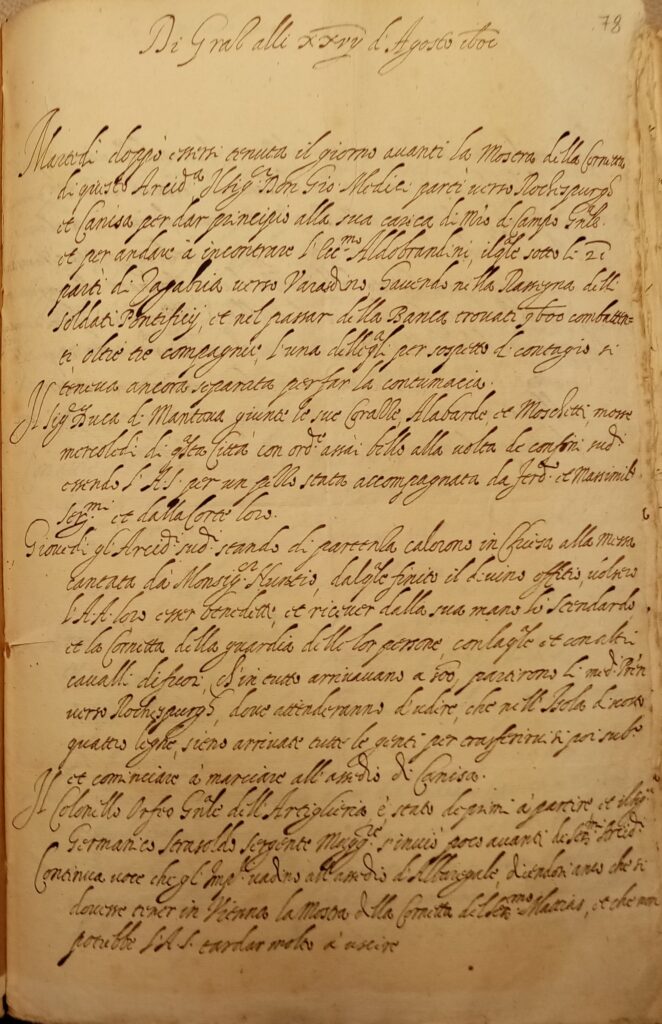 78
Di Graz alli xxvij d'Agosto
Martedi doppo essersi tenuta il giorno avanti la Mostra della Cornetta
di questo Arcid.ᵃ Il sig.ʳ Don Gio. Medici partì verso Rochespurgo
et Canisa per dar principio alla sua carica di Mro di Campo Gñle.
et per andare à incontrare l'Ecc.ᵐᵒ Aldobrandini, il qle sotto li 21
partì di Zagabria verso Varasdino, havendo nella Rassegna delli
soldati Pontificij, et nel passar della Banca trovati combatten=
ti oltre tre compagnie, l'una delle qli per sospetto di contagio si
teneva ancora separata per far la contumacia.
Il sig.ʳ Duca di Mantova giunte le sue Corazze, Alabarde, et Moschetti, mosse
mercoledi di qsta Città con ordᵉ assai bello alla volta de confini sudⁱ
essendo l'A.S. per un pezzo stata accompagnata da Ferdᵒ et Massimilᵒ
Serᵐⁱ et dalla Corte loro.
Giovedi gl'Arcid. sudⁱ stando di partenza calorono in Chiesa alla messa
cantata da Monsigʳ Nuntio, dal qle finito il divino offitio, volsero
l'A.A. loro esser benedette, et ricever dalla sua mano lo Stendardo
et la Cornetta della guardia delle lor persone, con la qle et con altri
cavalli di fuori, ch'in tutto arrivavano a 500, partirono li medⁱ Prēn
verso Rochespurgᵒ, dove attenderanno d'udire, che nell'Isola
quattro leghe, sieno arrivate tutte le genti per trasferirvisi poi subᵒ
et cominciare à marciare all'assedio di Canisa.
Il Colonello Orfeo Gñle dell'Artiglieria, è stato de primi à partire et il sigʳ
Germanico Strasoldo sergente Maggʳᵉ s'inviò poco avanti de Serᵐⁱ Arcidⁱ
Continua voce che gl'Impˡⁱ vadino all'assedio d'Albaregale, dicendosi anco che si
dovesse tener in Vienna la Mostra della Cornetta del Serᵐᵒ Mattias, et che non
potrebbe l'A.S. tardar molto à uscire